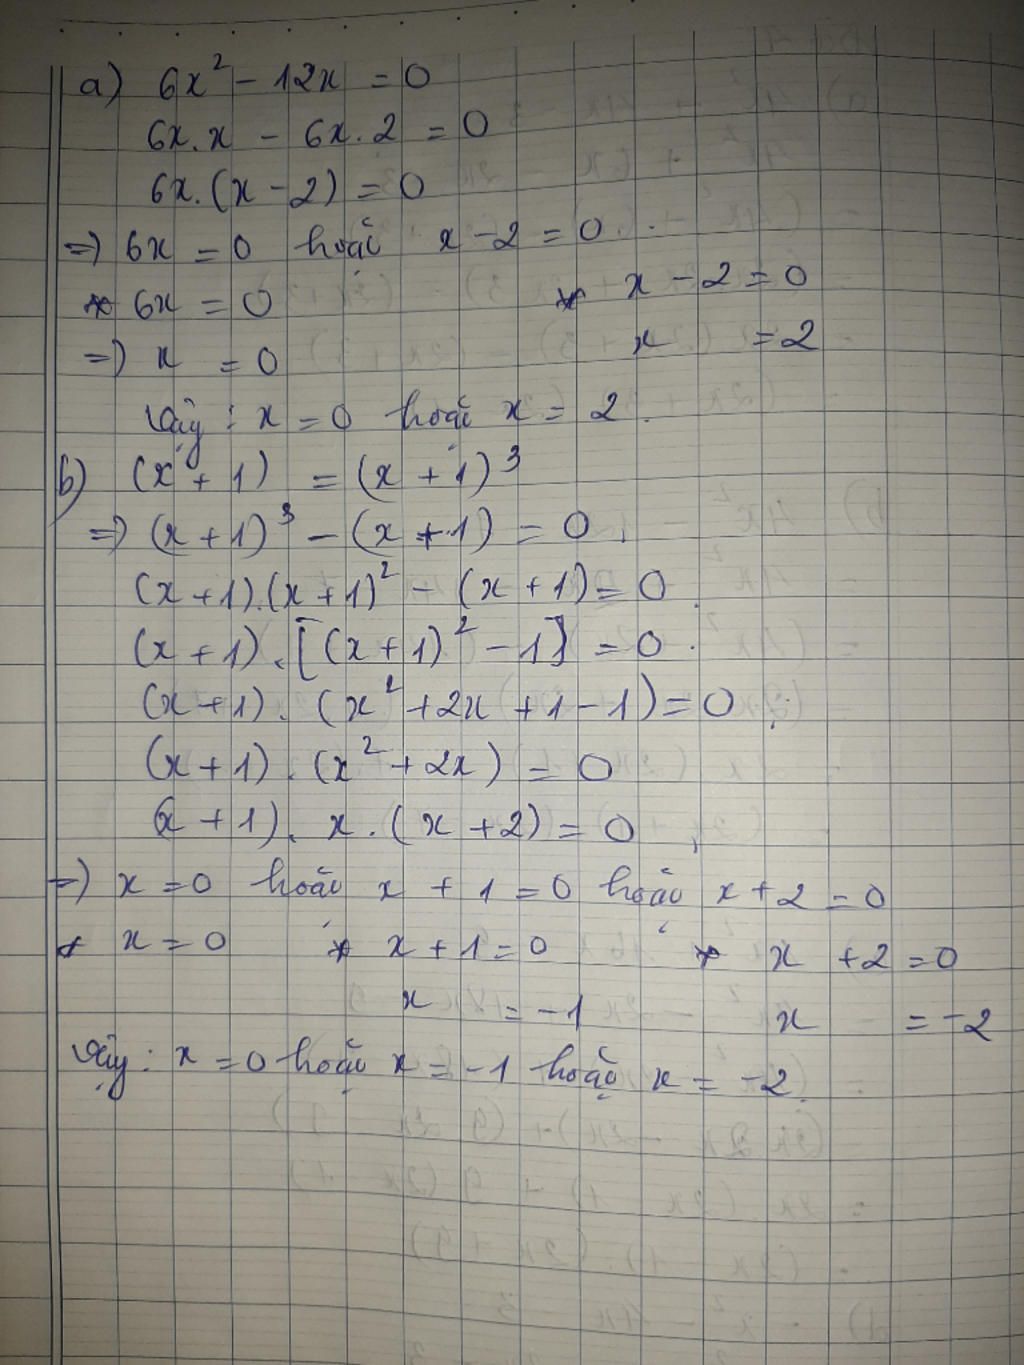 a) 6x² - 12x = 0
6x.x - 6x.2 = 0
6x.(x - 2) = 0
=> 6x = 0 hoặc x - 2 = 0.
* 6x = 0 * x - 2 = 0
=> x = 0 x = 2
Vậy : x = 0 hoặc x = 2.
b) (x + 1) = (x + 1)³
=> (x + 1)³ - (x + 1) = 0.
(x + 1).(x + 1)² - (x + 1) = 0.
(x + 1).[(x + 1)² - 1] = 0.
(x + 1).(x² + 2x + 1 - 1) = 0
(x + 1).(x² + 2x) = 0
(x + 1).x.(x + 2) = 0
=> x = 0 hoặc x + 1 = 0 hoặc x + 2 = 0
* x = 0 * x + 1 = 0 * x + 2 = 0
x = -1 x = -2
Vậy : x = 0 hoặc x = -1 hoặc x = -2.